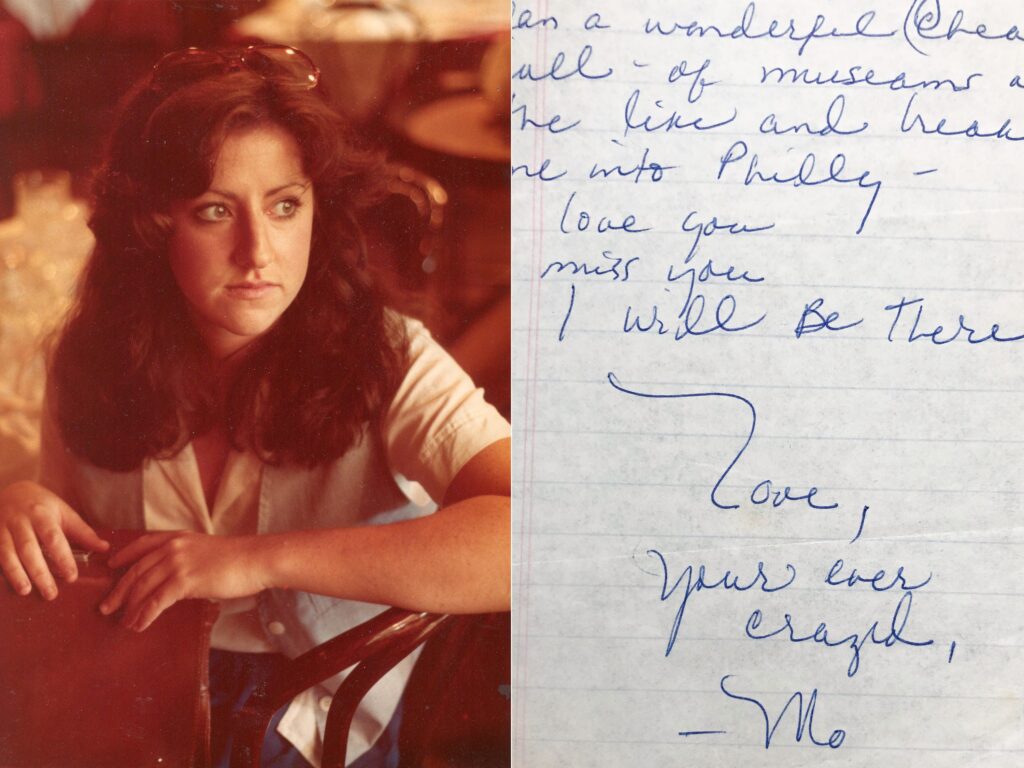 an a wonderful (Chea
all - of museams a
the like and break
me into Philly -
love you
miss you
I will Be There
Love,
Your ever
crazed,
- Mo